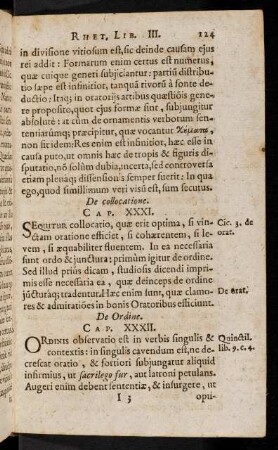 RHET. LIB. III. 124
in divisione vitiosum est, sic deinde causam ejus
rei addit: Formarum enim certus est numerus,
quæ cuique generi subjiciantur: partiũ distributio
sæpe est infinitior, tanquã rivorũ à fonte de-
ductio: Itaq; in oratorijs artibus quæstiõis gene-
re proposito, quot ejus formæ sint, subjungitur
absolutè: at cùm de ornamentis verborum sen-
tentiarúmq; præcipitur, quæ vocantur
non fit idem: Res enim est infinitior, hæc esse in
causa puto, ut omnis hæc de tropis & figuris di-
sputatio, nõ solùm dubia, incerta, sed controversa
etiam plenaq; dissensionis semper fuerit: In qua
ego, quod simillimum veri visũ est, sum secutus.
De collocatione.
CAP. XXXI.
SEQUITUR collocatio, quæ erit optima, si vin-
ctam oratione efficiet, si cohærentem, si le-
vem, si æquabiliter fluentem. In ea necessaria
sunt ordo & junctura: primùm igitur de ordine.
Sed illud priùs dicam, studiosis dicendi imprimis
esse necessaria ea, quæ deinceps de ordine
jũcturaq; tradentur. Hæc enim sunt, quæ clamo-
res & admiratiões in bonis Oratoribus efficiunt.
Cic. 3. de
orat.
De orat.
De Ordine.
CAP. XXXII.
ORDINIS observatio est in verbis singulis &
contextis: in singulis cavendum est, ne de-
crescat oratio, & fortiori subjungatur aliquid
infirmius, ut sacrilego fur, aut latroni petulans.
Augeri enim debent sententiæ, & insurgere, ut
Quinctil.
lib. 9. c. 4.
I 3 opti-